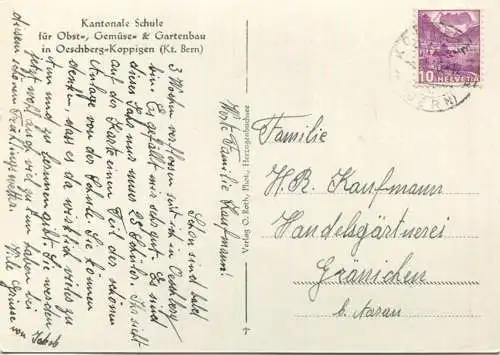 Kantonale Schule
für Obst-, Gemüse- & Gartenbau
in Oeschberg-Koppigen (Kt. Bern)
Werte Familie Kaufmann!
Schon sind bald
3 Wochen verflossen seit ich in Oeschberg
bin. Es gefällt mir sehr gut. Es sind
dieses Jahr nur 23 Schüler. Ihr seht
auf der Karte einen Teil der schönen
Anlage von der Schule. Sie können
denken, dass es da wirklich vieles zu
tun und zu lernen gibt. Sie werden
jetzt wohl auch viel zu tun haben bei
diesem schönen Frühlingswetter.
Viele Grüsse von Jakob
Verlag O. Roth, Phot., Herzogenbuchsee
10 HELVETIA
(BERN)
Familie
H. R. Kaufmann
Handelsgärtnerei
Gränichen
b. Aarau